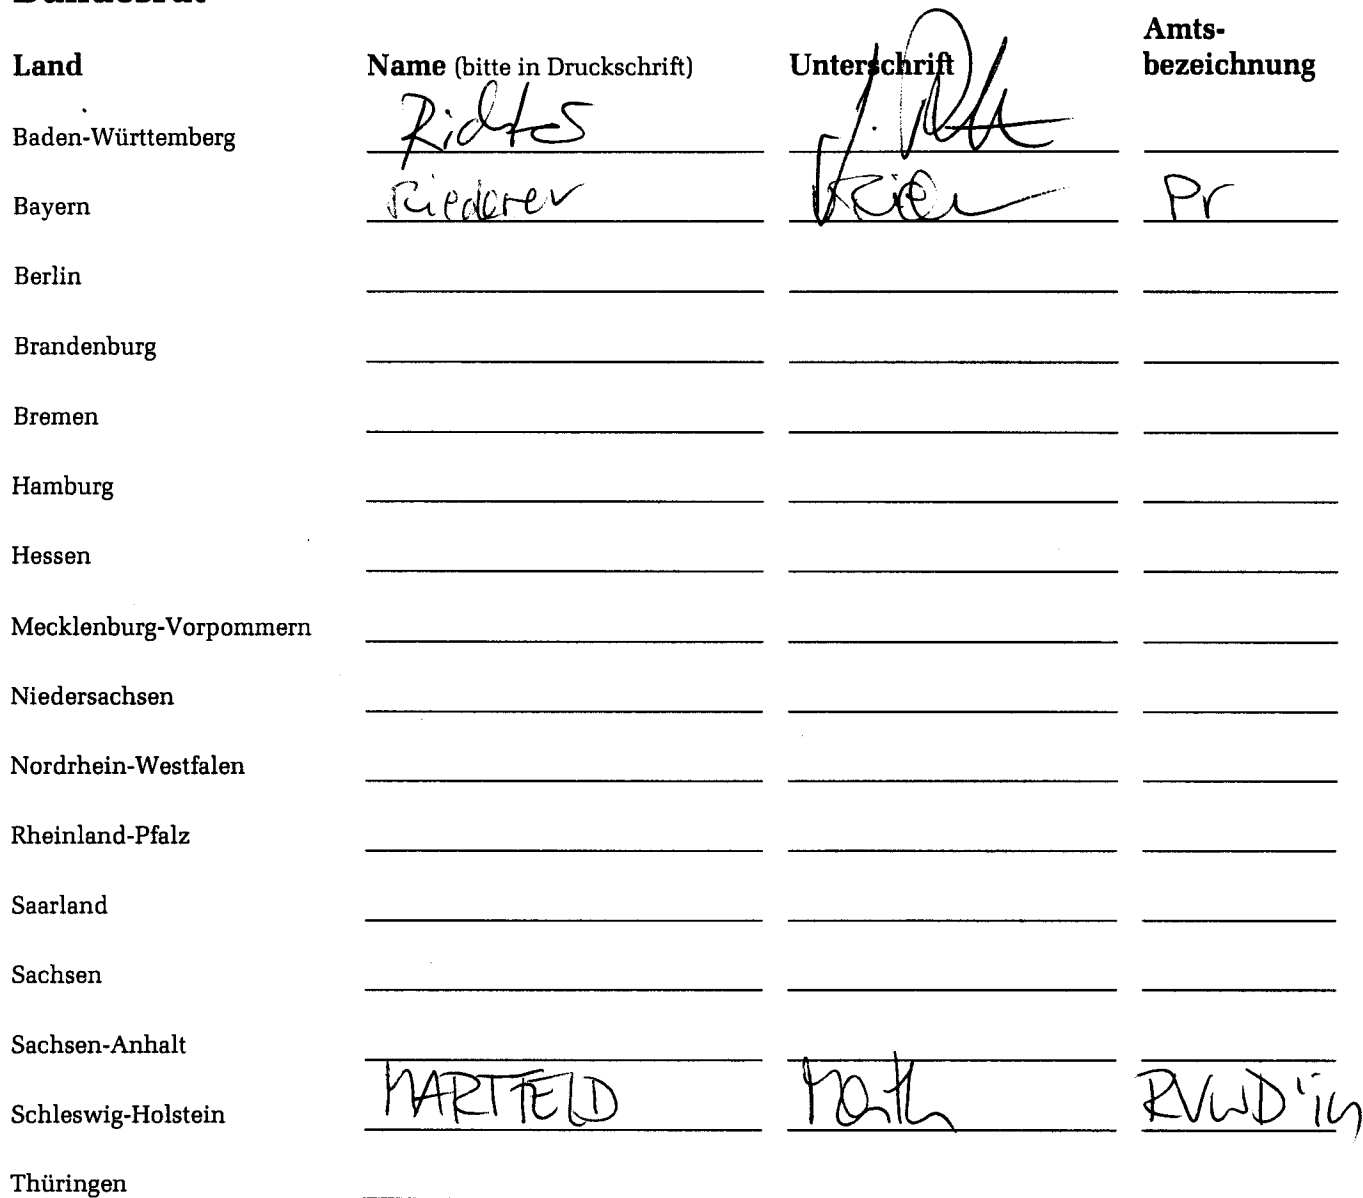 Bundesrat
Amts-
Land Name (bitte in Druckschrift) Unterschrift bezeichnung
Baden-Württemberg
Bayern Riederer Pr
Berlin
Brandenburg
Bremen
Hamburg
Hessen
Mecklenburg-Vorpommern
Niedersachsen
Nordrhein-Westfalen
Rheinland-Pfalz
Saarland
Sachsen
Sachsen-Anhalt
Schleswig-Holstein MARTFELD RVwD'in
Thüringen